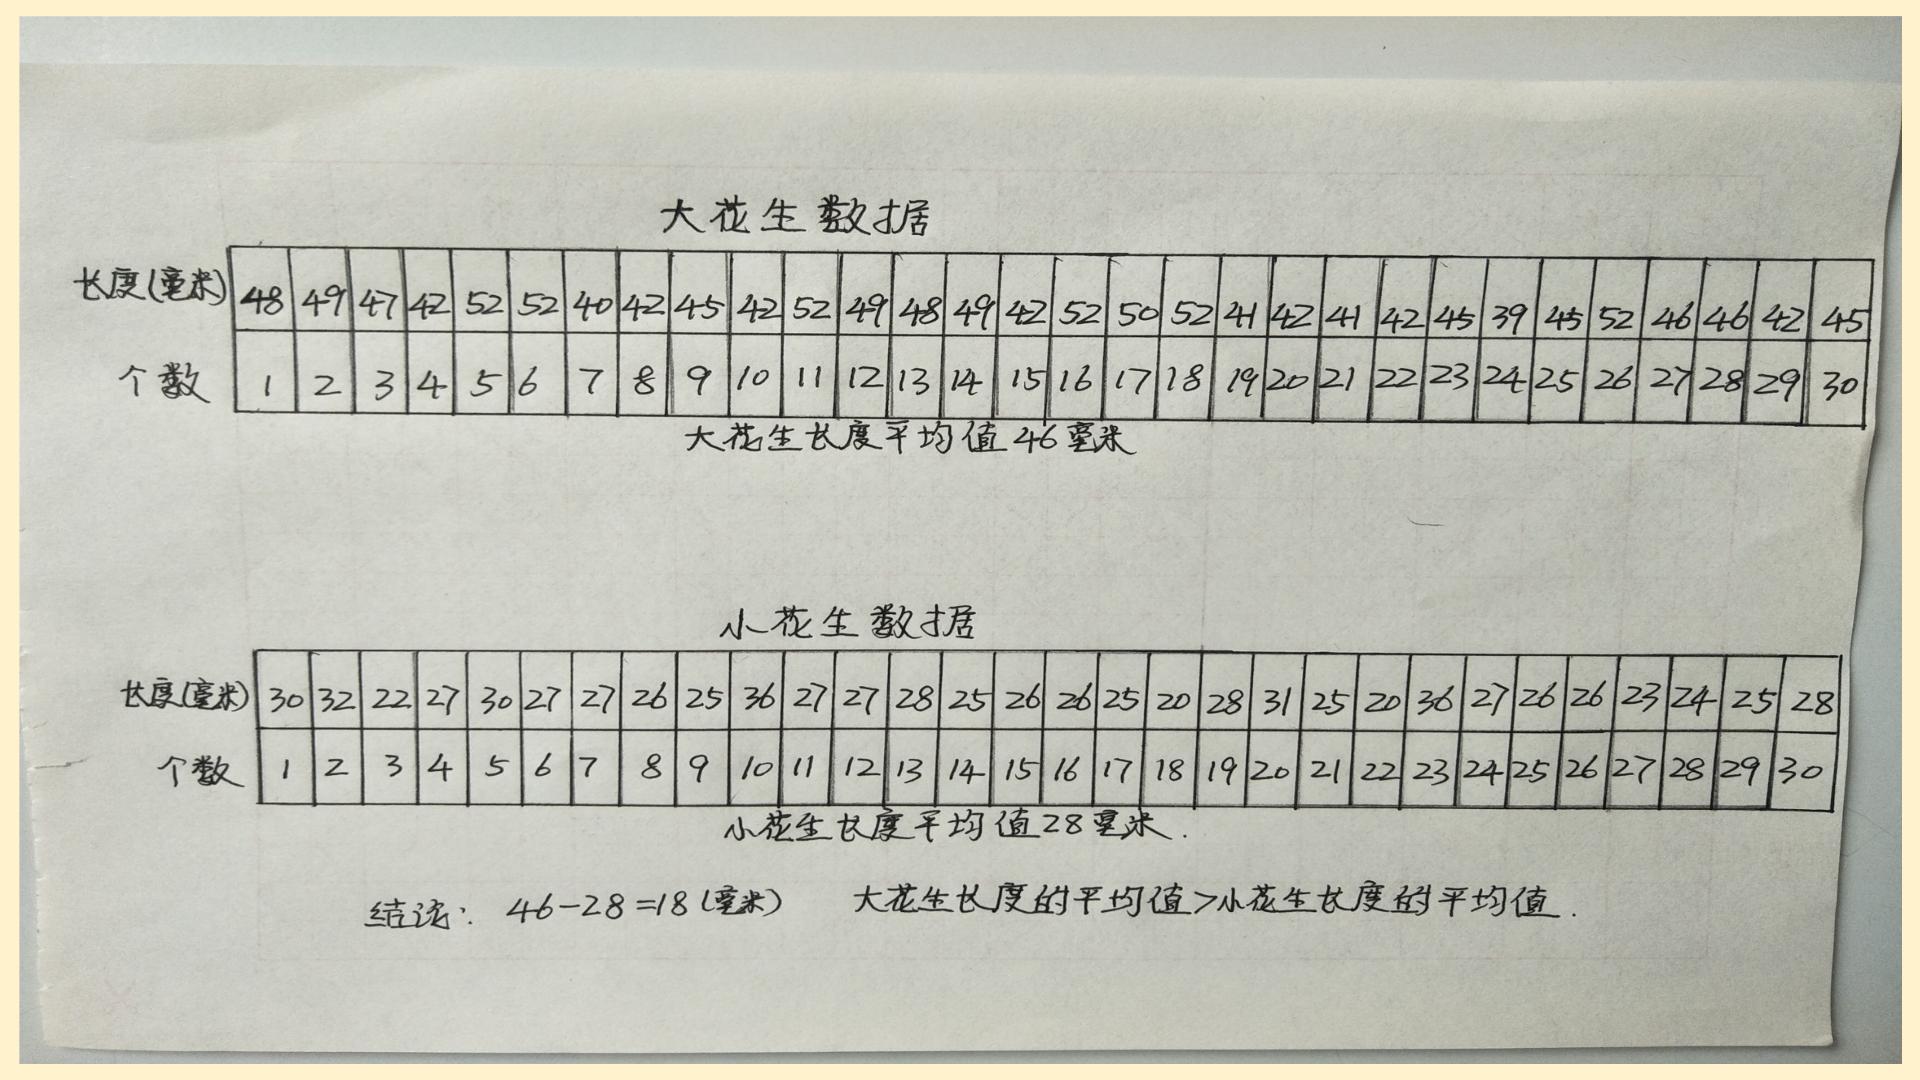 大花生数据
长度(毫米) 48 49 47 42 52 52 40 42 45 42 52 49 48 49 42 52 50 52 41 42 41 42 45 39 45 52 46 46 42 45
个数 1 2 3 4 5 6 7 8 9 10 11 12 13 14 15 16 17 18 19 20 21 22 23 24 25 26 27 28 29 30
大花生长度平均值46毫米
小花生数据
长度(毫米) 30 32 22 27 30 27 27 26 25 36 27 27 28 25 26 26 25 20 28 31 25 20 36 27 26 26 23 24 25 28
个数 1 2 3 4 5 6 7 8 9 10 11 12 13 14 15 16 17 18 19 20 21 22 23 24 25 26 27 28 29 30
小花生长度平均值28毫米.
结论: 46-28=18(毫米) 大花生长度的平均值>小花生长度的平均值.